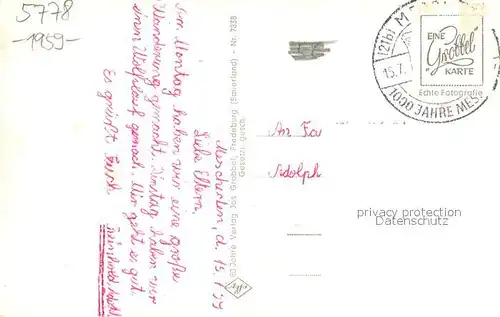 5778
-1959-
Meschede, d. 15.7.59
Liebe Eltern,
Am Montag haben wir eine große
Wanderung gemacht. Dienstag haben wir
einen Wolfslauf gemach. Mir geht es gut.
Es grüßt Euch
60 Jahre Verlag Jos Grobbel, Fredeburg (Sauerland) - Nr. 7838
Gesetzl. gesch.
An Fa
Adolph
(21b) M
15.7.
1000 JAHRE MES
EINE
Grobbel
KARTE
Echte Fotografie
privacy protection
Datenschutz